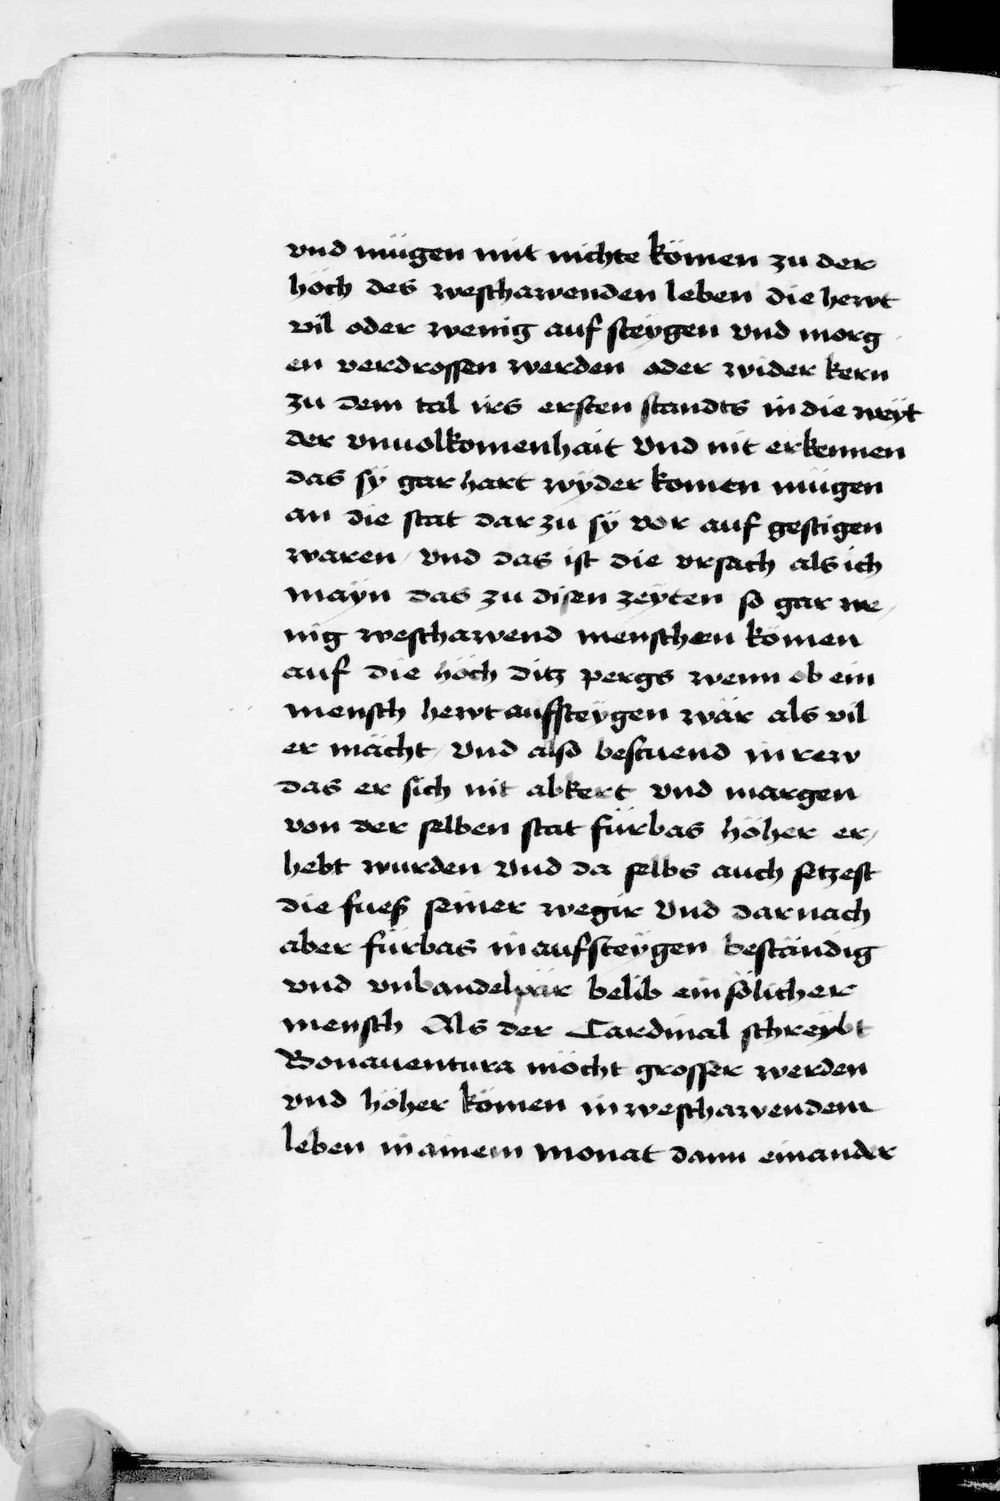 vnd mügen mit nichte kömen zu der
höch des weschawenden leben die hewt
vil oder wenig auf steygen vnd morg
en verdrossen werden oder wider kern
zu dem tal irs ersten standts in die weyt
der vnuolkomenhait vnd nit erkennen
das sy gar hart wyder komen mügen
an die stat dar zu sy vor auf gestigen
waren / vnd das ist die vrsach als ich
mayn das zu disen zeyten so gar we /
nig weschawend menschen kömen
auf die höch ditz pergs wenn ob ein
mensch hewt aufsteygen wär als vil
er mächt / vnd also bestuend in rew
das er sich nit abkert vnd margen
von der selben stat fürbas höher er /
hebt wurden vnd da selbs auch setzest
die fueß seiner wegir vnd darnach
aber fürbas in aufsteygen beständig
vnd vnbandelpär belib ein sölicher
mensch Als der Cardinal schreybt
Bonauentura möcht grosser werden
vnd höher kömen in weschawendem
leben in ainem monat dann ein ander